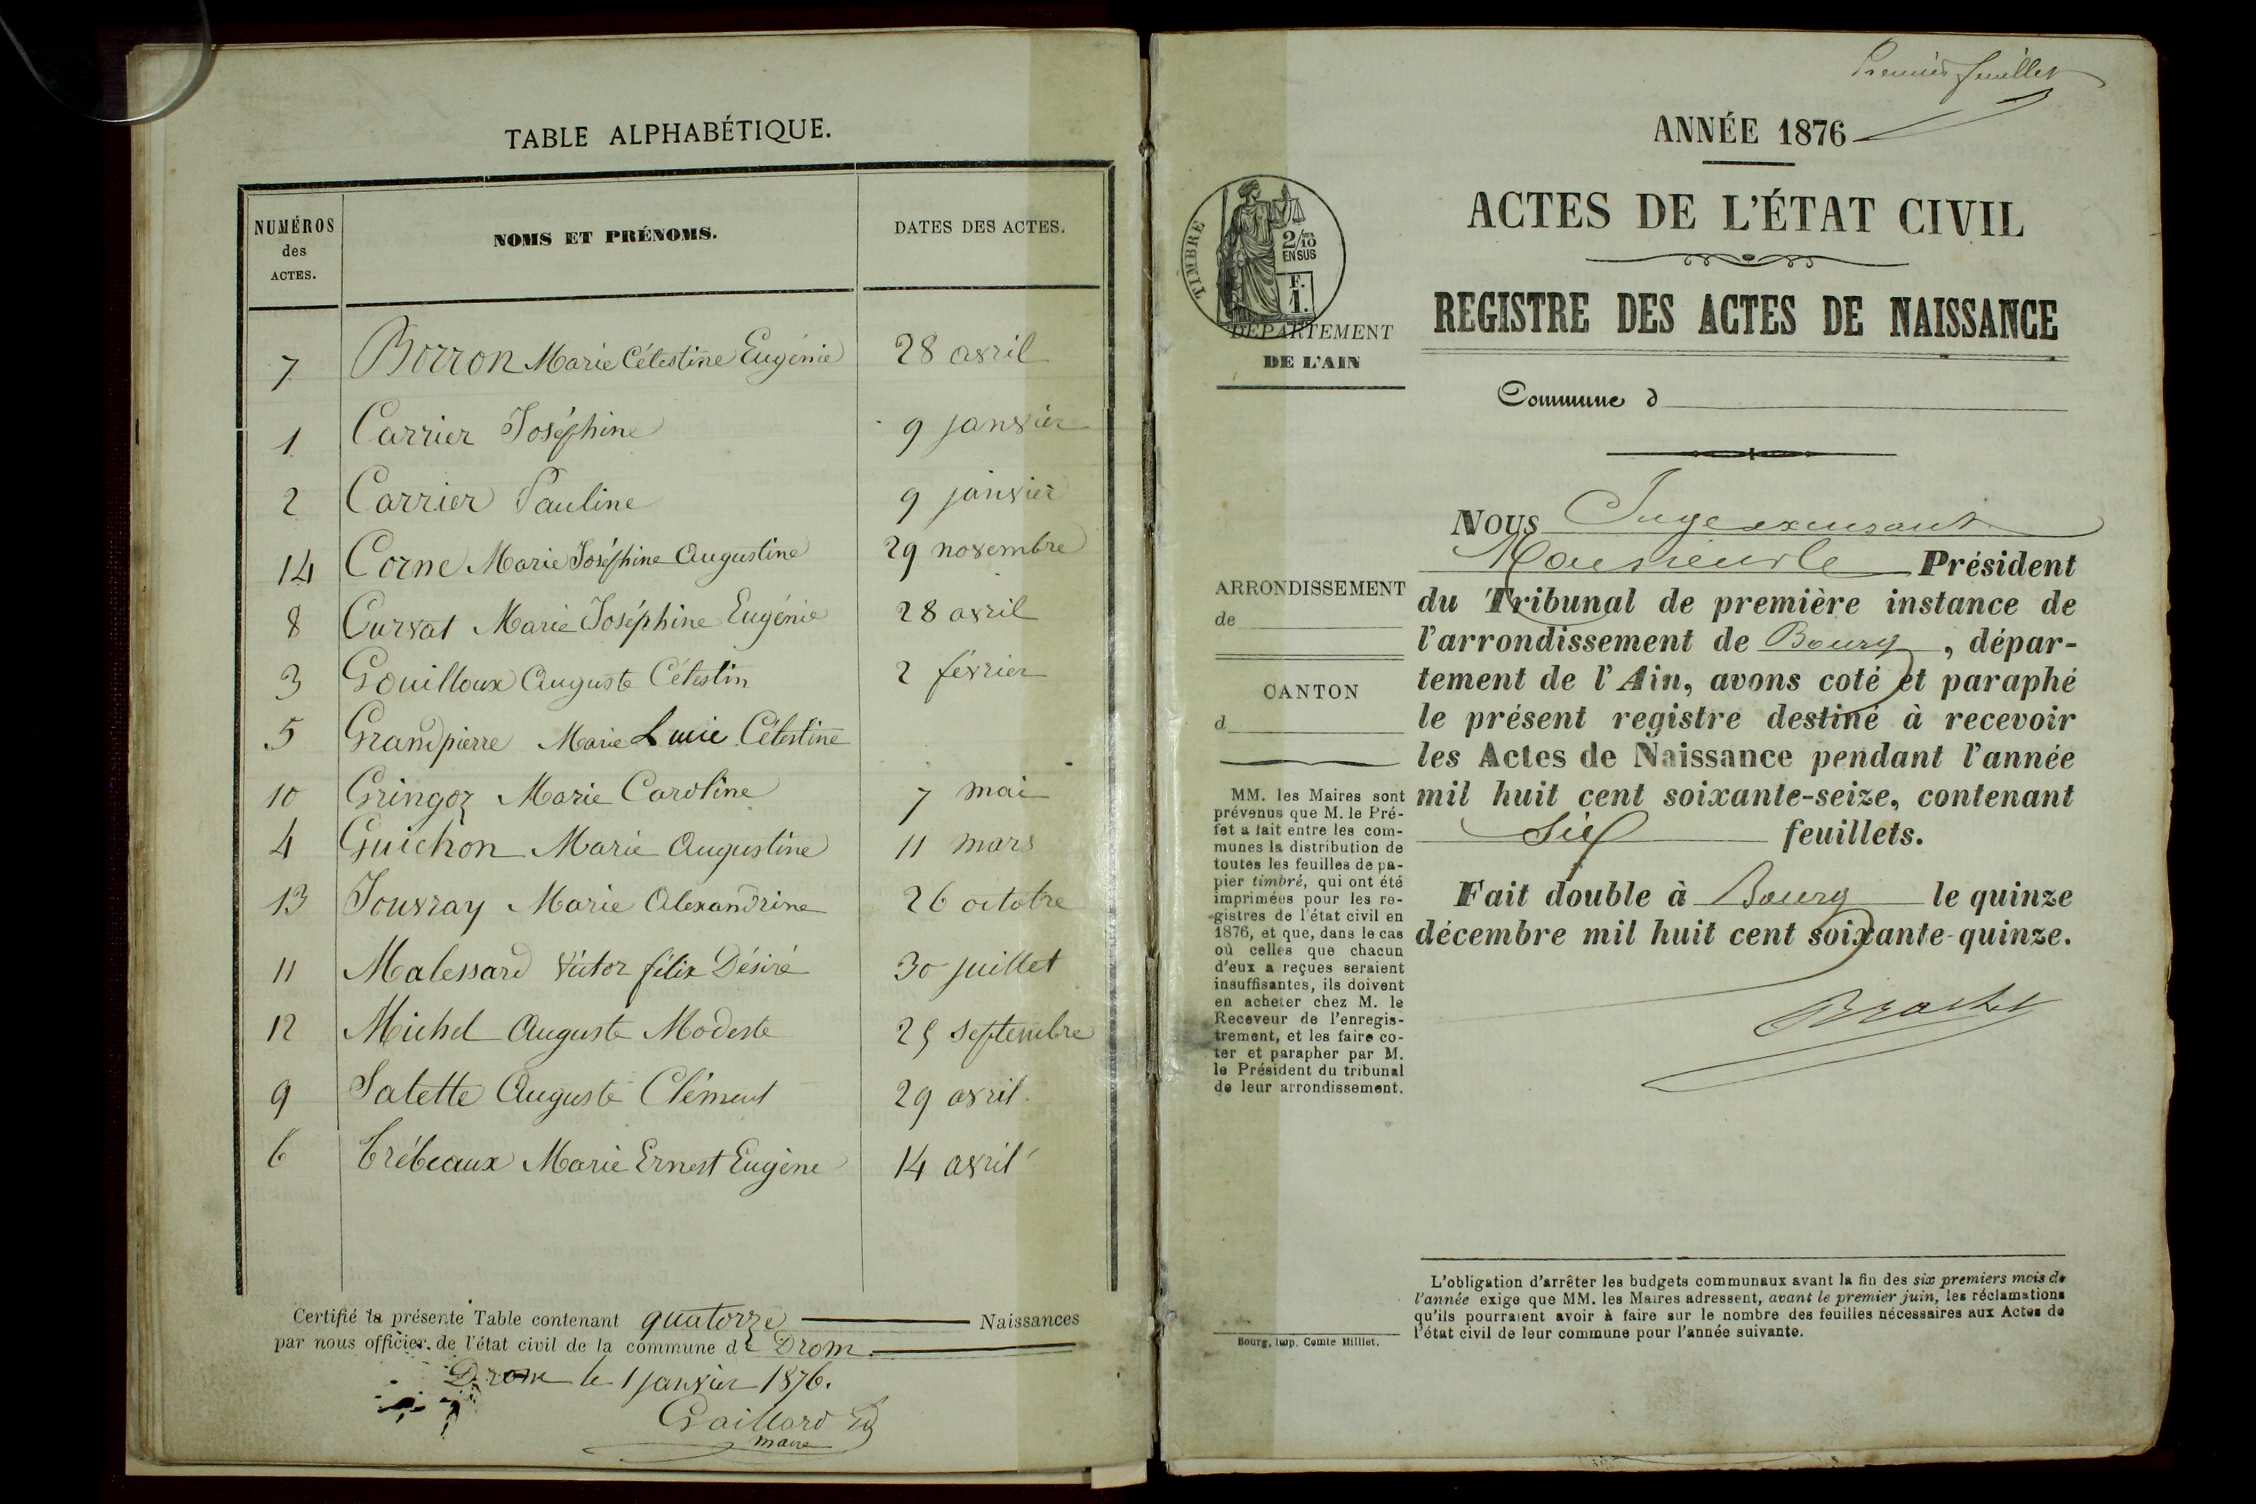 TABLE ALPHABÉTIQUE.
NUMÉROS des ACTES.
NOMS ET PRÉNOMS.
DATES DES ACTES.
7 Borron Marie Célestine Eugénie 28 avril
1 Carrier Joséphine 9 janvier
2 Carrier Pauline 9 janvier
14 Corne Marie Joséphine Augustine 29 novembre
8 Curvat Marie Joséphine Eugénie 28 avril
3 Gouilloux Auguste Célestin 2 février
5 Grandpierre Marie Lucie Célestine
10 Gringoz Marie Caroline 7 mai
4 Guichon Marie Augustine 11 mars
13 Jouvray Marie Alexandrine 26 octobre
11 Malessard Victor félix Désiré 30 juillet
12 Michel Auguste Modeste 25 septembre
9 Salette Auguste Clément 29 avril
6 Trébeaux Marie Ernest Eugène 14 avril
Certifié la présente Table contenant quatorze Naissances
par nous officier de l'état civil de la commune de Drom
Drom le 1 janvier 1876.
Gaillard
maire
Premier feuillet
ANNÉE 1876
ACTES DE L'ÉTAT CIVIL
REGISTRE DES ACTES DE NAISSANCE
TIMBRE
2/10
EN SUS
F.
1.
DÉPARTEMENT
DE L'AIN
Commune d
ARRONDISSEMENT
de
CANTON
d
MM. les Maires sont
prévenus que M. le Pré-
fet a fait entre les com-
munes la distribution de
toutes les feuilles de pa-
pier timbré, qui ont été
imprimées pour les re-
gistres de l'état civil en
1876, et que, dans le cas
où celles que chacun
d'eux a reçues seraient
insuffisantes, ils doivent
en acheter chez M. le
Receveur de l'enregis-
trement, et les faire co-
ter et parapher par M.
le Président du tribunal
de leur arrondissement.
Bourg, Imp. Comte Milliet.
Nous Juge
Monsieur le Président
du Tribunal de première instance de
l'arrondissement de Bourg, dépar-
tement de l'Ain, avons coté et paraphé
le présent registre destiné à recevoir
les Actes de Naissance pendant l'année
mil huit cent soixante-seize, contenant
Six feuillets.
Fait double à Bourg le quinze
décembre mil huit cent soixante-quinze.
L'obligation d'arrêter les budgets communaux avant la fin des six premiers mois de
l'année exige que MM. les Maires adressent, avant le premier juin, les réclamations
qu'ils pourraient avoir à faire sur le nombre des feuilles nécessaires aux Actes de
l'état civil de leur commune pour l'année suivante.